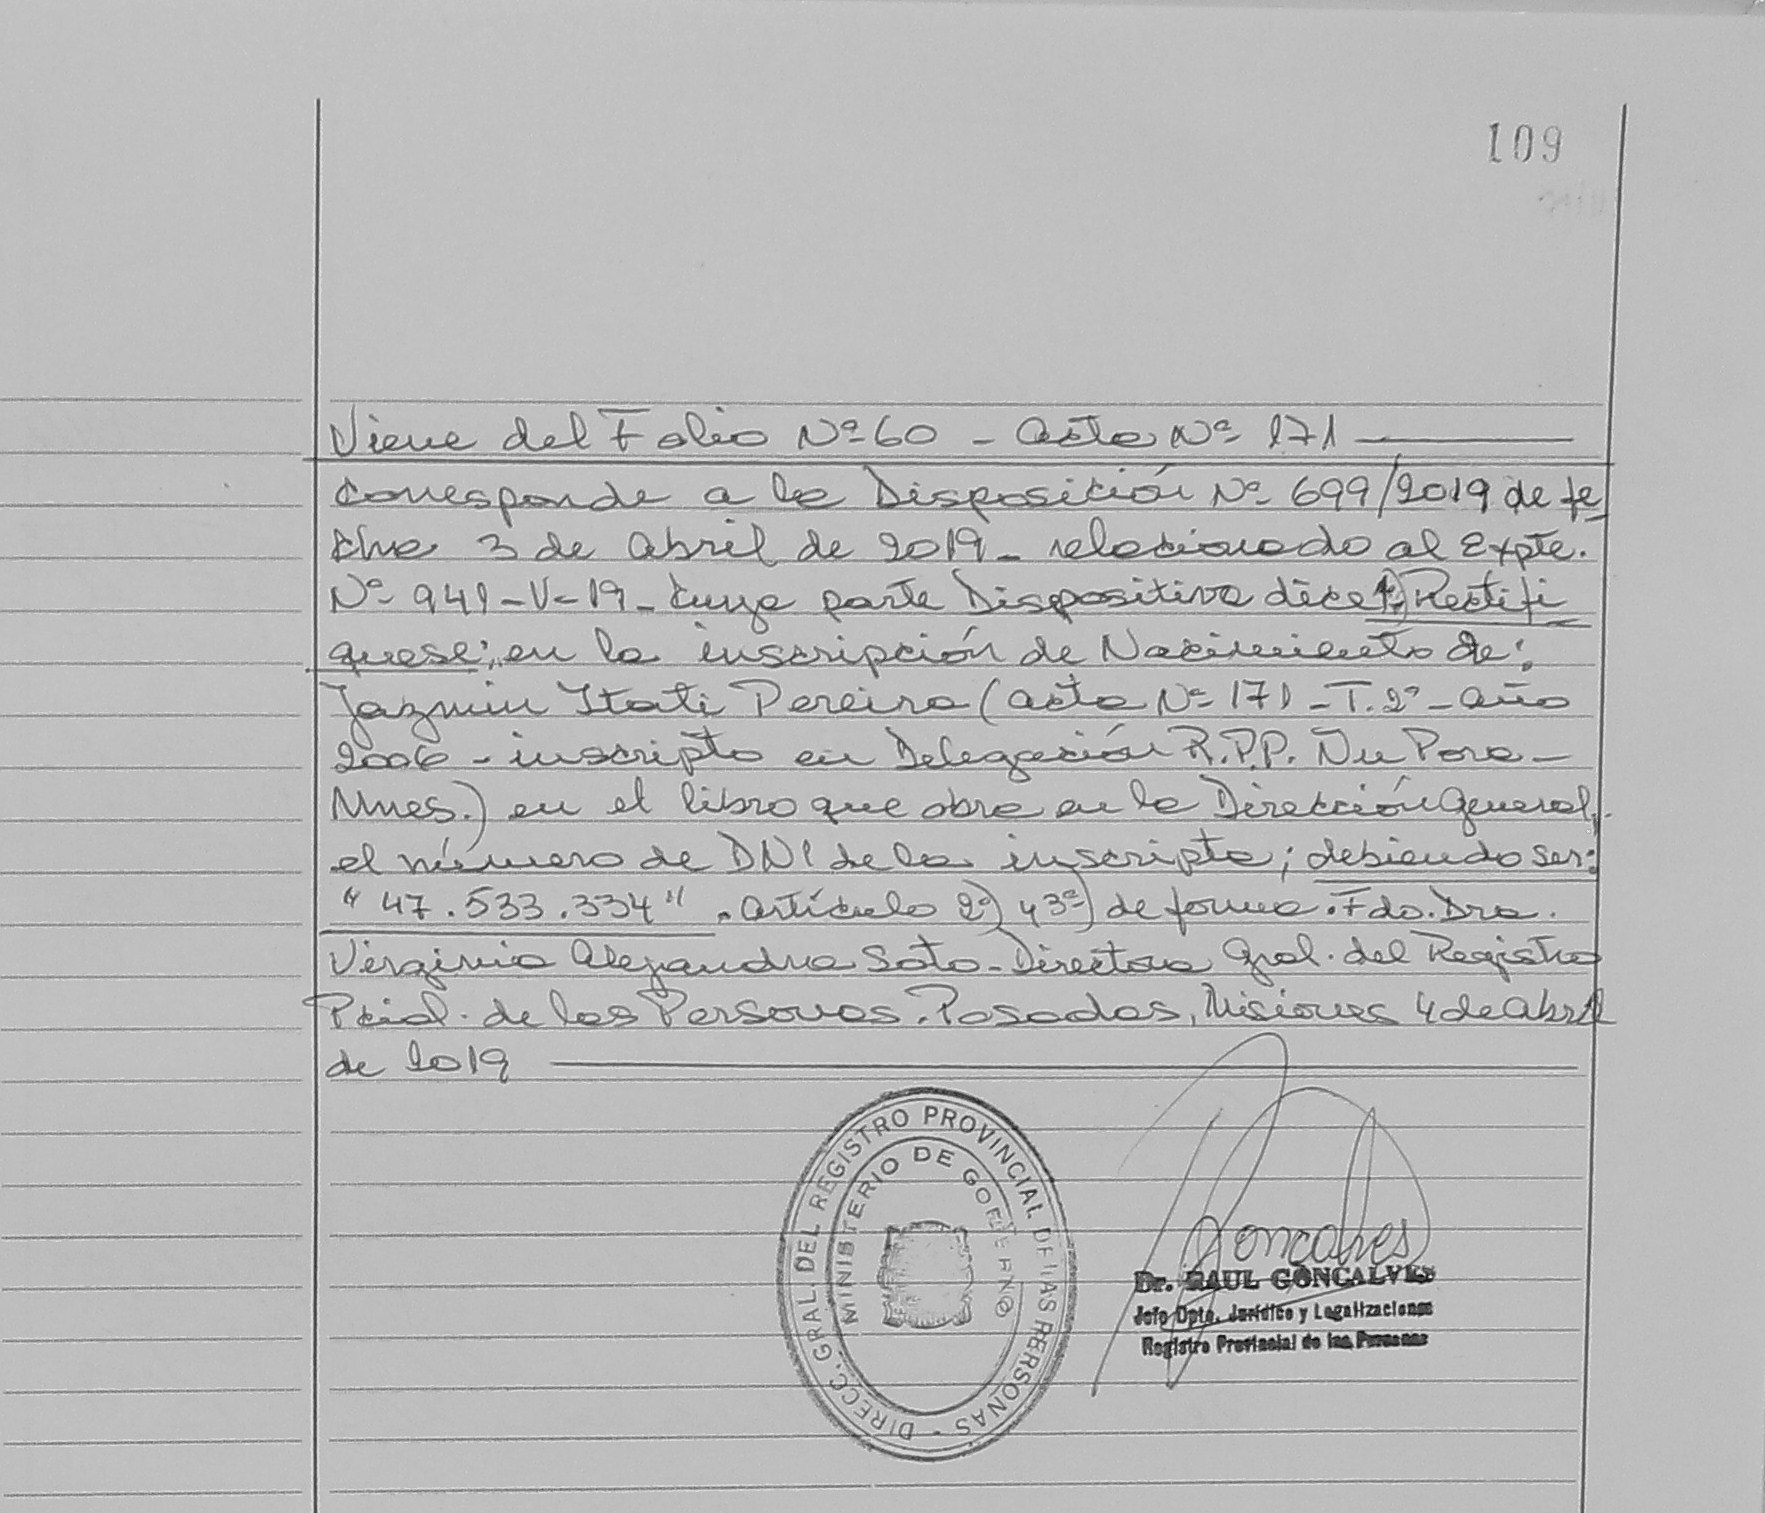 109
Viene del Folio Nº 60 - Acta Nº 171
Corresponde a la Disposición Nº 699/2019 de fe
cha 3 de abril de 2019 - relacionado al Expte.
Nº 941-V-19 - cuya parte Dispositiva dice 1º) Rectifi
quese: en la inscripción de Nacimiento de:
Jazmin Itati Pereira (Acta Nº 171 - T. 2º - año
2006 - inscripto en Delegación R.P.P. Ñu Pora -
Mnes.) en el libro que obra en la Dirección General,
el número de DNI de la inscripta; debiendo ser:
"47.533.334". Artículo 2º) y 3º) de forma. Fdo. Dra.
Virginia Alejandra Soto - Directora Gral. del Registro
Pcial. de las Personas. Posadas, Misiones 4 de abril
de 2019
DIRECC. GRAL. DEL REGISTRO PROVINCIAL DE LAS PERSONAS -
MINISTERIO DE GOBIERNO
Goncalves
Dr. RAUL GONCALVES
Jefe Dpto. Jurídico y Legalizaciones
Registro Provincial de las Personas